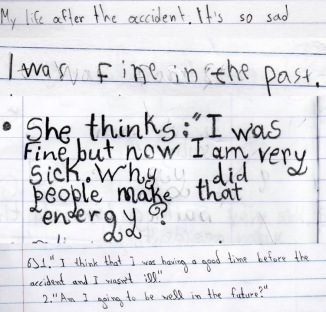 My life after the accident. It's so sad
I was fine in the past.
• She thinks: "I was
fine, but now I am very
sick. Why did
people make that
energy?
6)1. "I think that I was having a good time before the
accident and I wasn't ill."
2. "Am I going to be well in the future?"